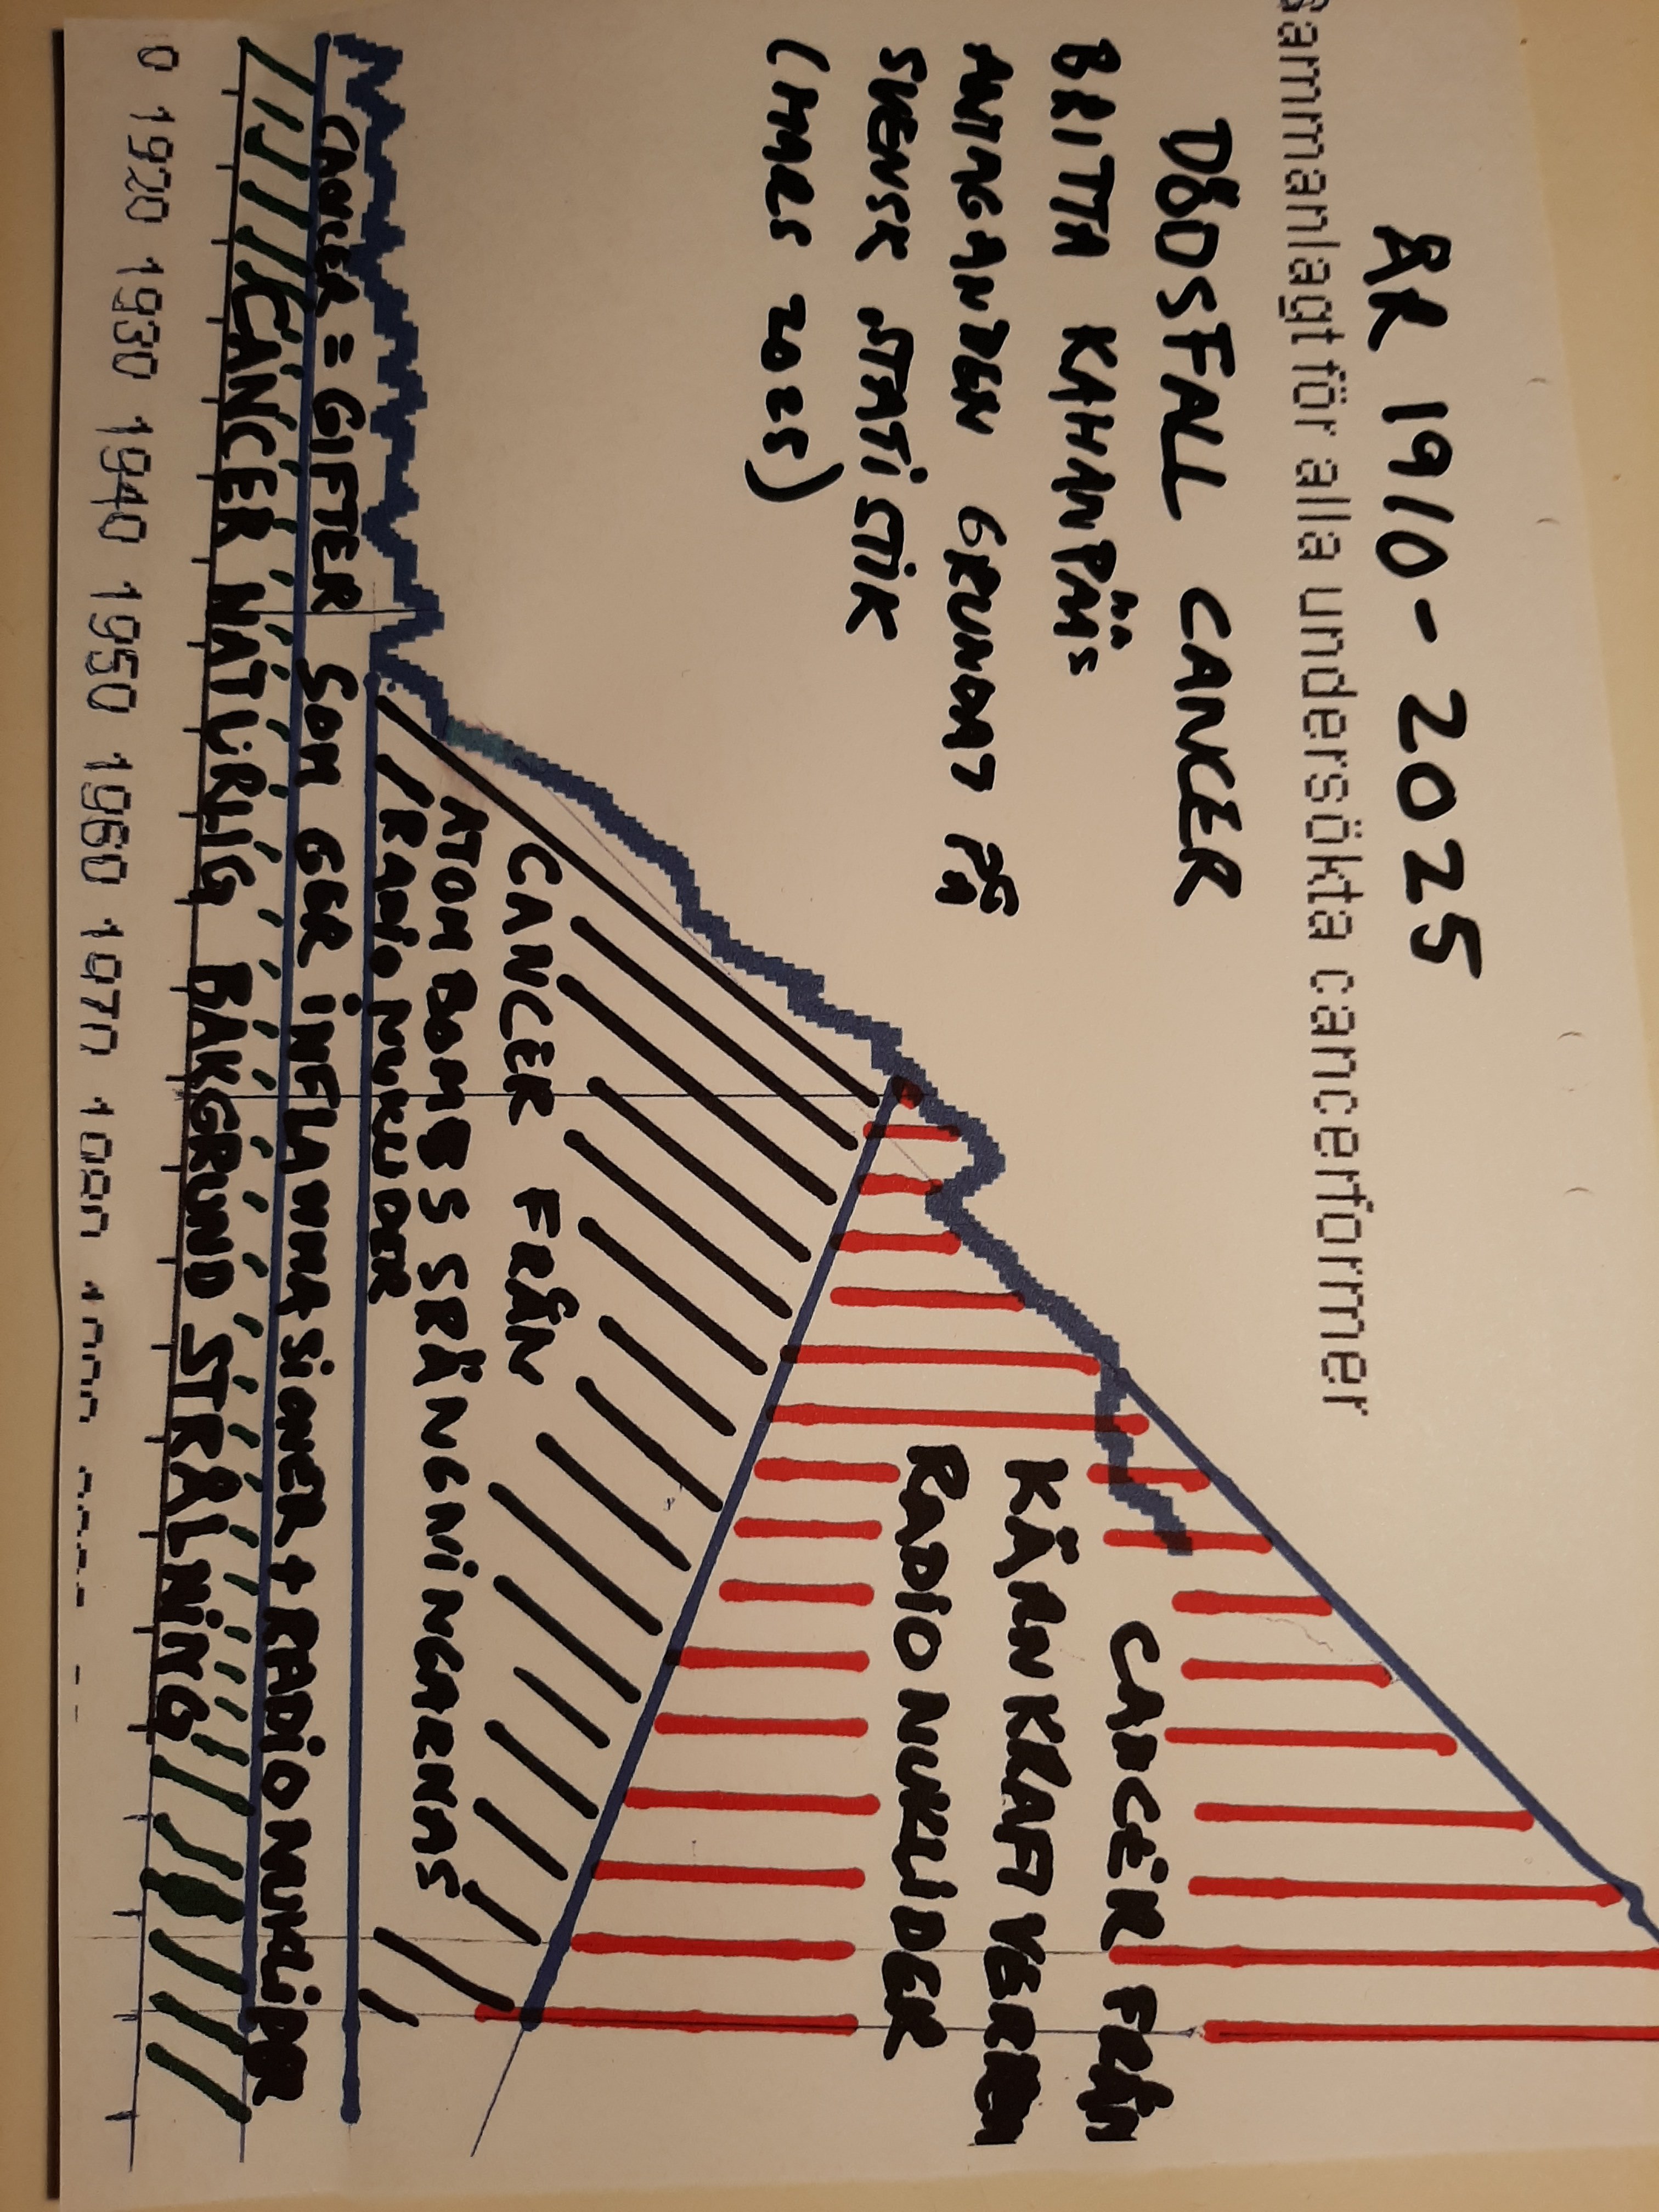 ÅR 1910 - 2025
Sammanlagt för alla undersökta cancerformer
DÖDSFALL CANCER
BRITTA KAHANPÄÄS
ANTAGANDEN GRUNDAT PÅ
SVENSK STATISTIK
(MARS 2025)
CANCER FRÅN
KÄRNKRAFTVERKEN
RADIONUKLIDER
CANCER FRÅN
ATOMBOMBSSPRÄNGNINGARNAS
RADIONUKLIDER
CANCER = GIFTER SOM GER INFLAMMASIONER + RADIONUKLIDER
CANCER NATURLIG BAKGRUND STRÅLNING
0 1920 1930 1940 1950 1960 1970